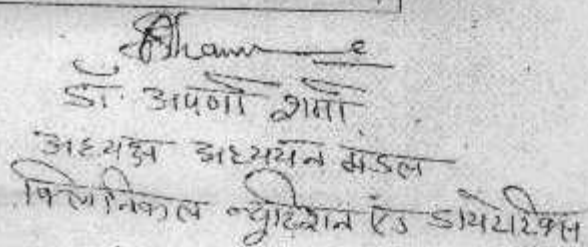 डॉ. अपर्णा शर्मा
अध्यक्ष अध्ययन मंडल
क्लिनिकल न्यूट्रिशन एंड डायटेटिक्स